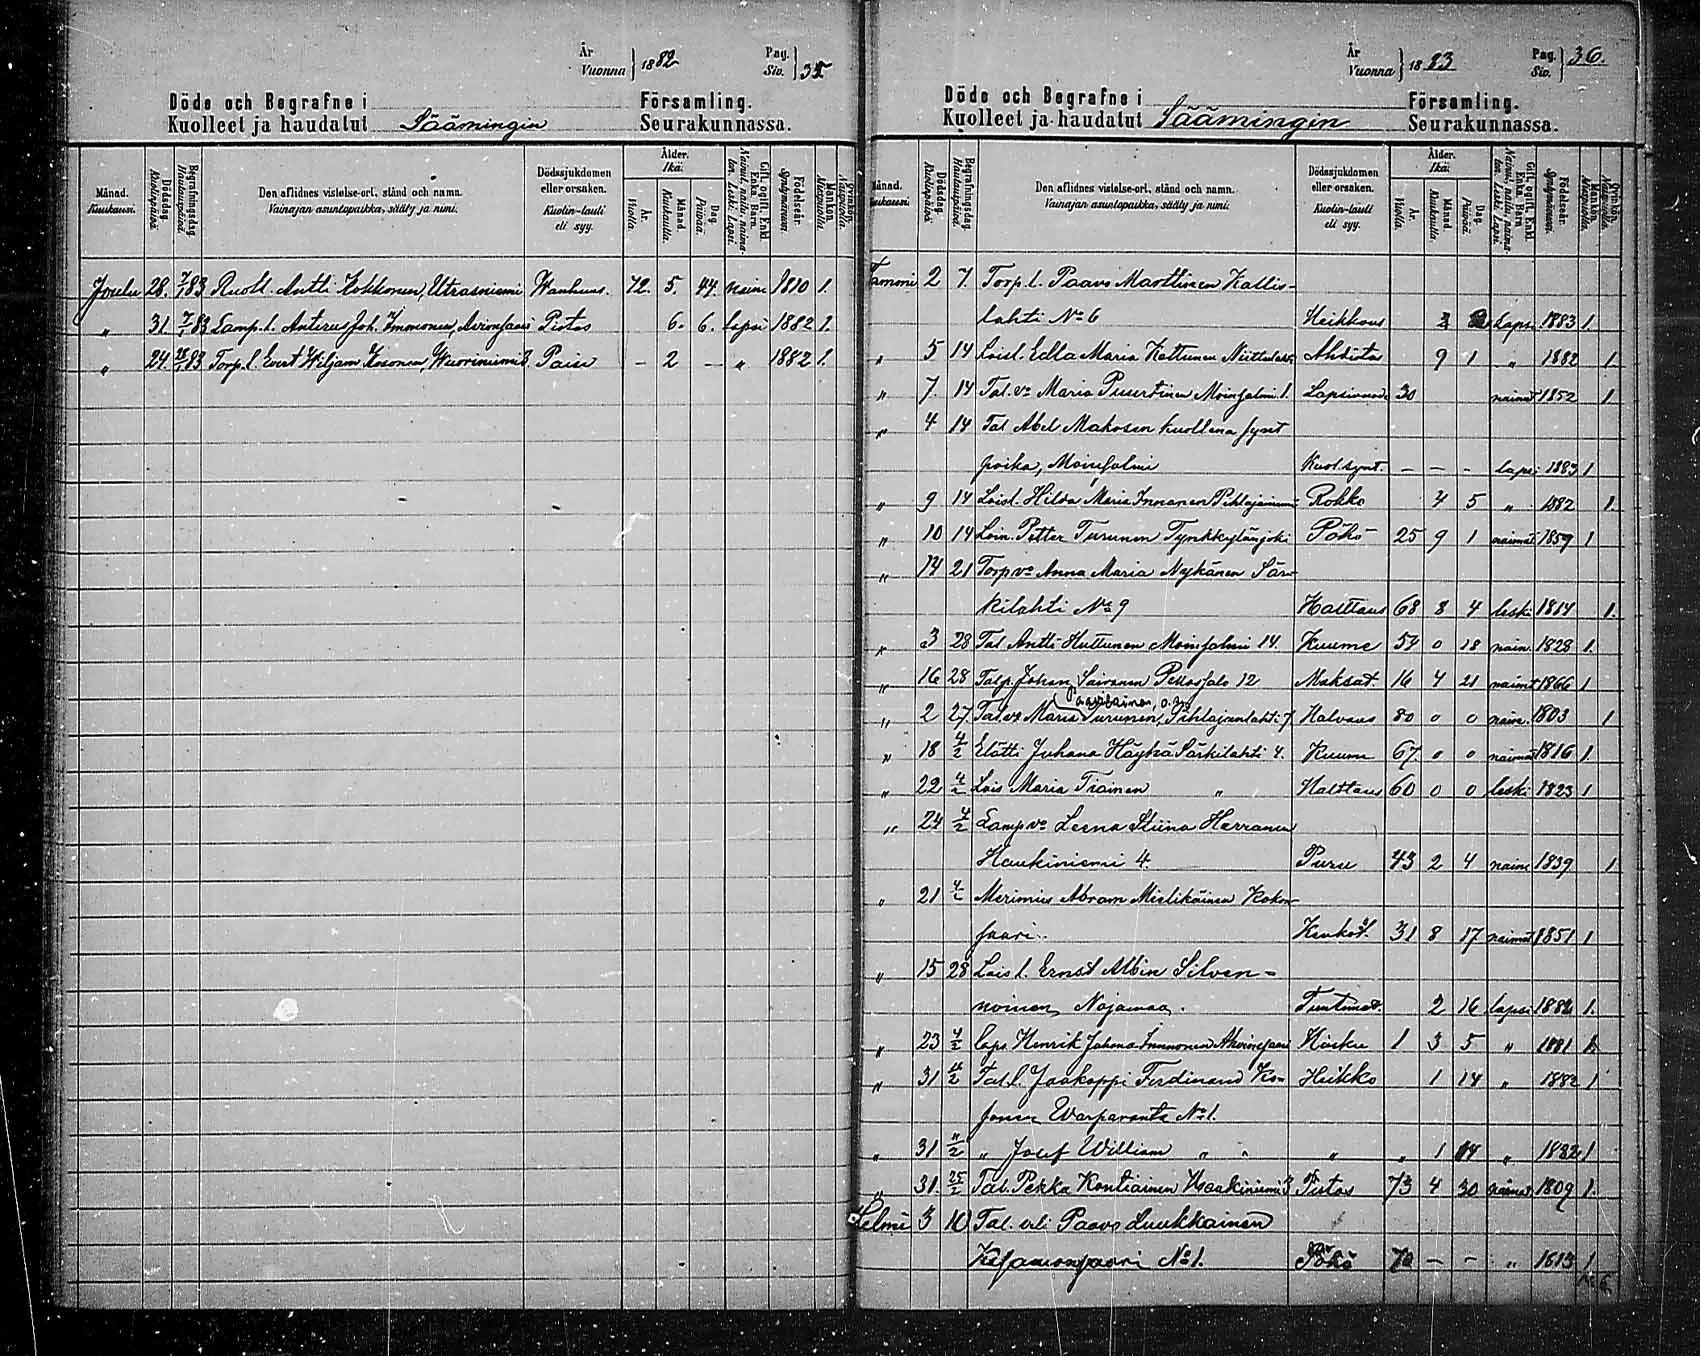 År
Vuonna } 1882 Pag.
Siv. } 35
Döde och Begrafne i Församling.
Kuolleet ja haudatut Säämingin Seurakunnassa.
Månad.
Kuukausi.
Dödsdag.
Kuolinpäivä.
Begrafningsdag.
Hautauspäivä.
Den aflidnes vistelse-ort, stånd och namn.
Vainajan asuntopaikka, sääty ja nimi.
Dödssjukdomen
eller orsaken.
Kuolin-tauti
eli syy.
Ålder.
Ikä.
År.
Vuotta.
Månad.
Kuukautta.
Dag.
Päivää.
Gift, ogift, Enkl.
Enka, Barn.
Nainut, naitu, naima-
ton, Leski, Lapsi.
Födelseår.
Syntymävuosi.
Mankön.
Miespuolta.
Qvinkön.
Naispuolta.
Joulu 28. 7/1 83 Ruotl. Antti Kokkonen, Utrasniemi Wanhuus. 72. 5. 44. nain 1810 1.
„ 31 7/1 83 Lamp. l. Anterus Joh. Immonen, Avionsaari Pistos 6. 6. lapsi 1882 1.
„ 24. 28/1 83 Torp. l. Evert Wiljam Kosonen, Wuoriniemi 3 Paise – 2 – „ 1882 1.
År
Vuonna } 1883 Pag.
Siv. } 36.
Döde och Begrafne i Församling.
Kuolleet ja haudatut Säämingin Seurakunnassa.
Månad.
Kuukausi.
Dödsdag.
Kuolinpäivä.
Begrafningsdag.
Hautauspäivä.
Den aflidnes vistelse-ort, stånd och namn.
Vainajan asuntopaikka, sääty ja nimi.
Dödssjukdomen
eller orsaken.
Kuolin-tauti
eli syy.
Ålder.
Ikä.
År.
Vuotta.
Månad.
Kuukautta
Dag.
Päivää.
Gift, ogift, Enkl.
Enka, Barn.
Nainut, naitu, naima-
ton, Leski, Lapsi.
Födelseår.
Syntymävuosi.
Mankön.
Miespuolta.
Qvinkön.
Naispuolta.
Tammi 2 7. Torp. l. Paavo Marttinen Kallis-
lahti No 6 Heikkous lapsi 1883 1.
„ 5 14 Loisl. Edla Maria Kettunen Ahdistus 9 1 „ 1882 1.
„ 7. 14 Tal. vo Maria Puurtinen Moinsalmi 1. Lapsivuode 30 nainut 1852 1
„ 4 14 Tal Abel Makosen kuollena synt
poika, Moinsalmi Kuol. synt. – – – lapsi 1883 1
„ 9 14 Loisl. Hilda Maria Immonen Pihlajaniemi Rokko 4 5 „ 1882 1.
„ 10 14 Loin. Petter Turunen Tynkkylänjoki Pöhö 25 9 1 naimat. 1859 1
„ 14 21 Torp vo Anna Maria Nykänen Sär-
kilahti No 9 Halttaus 68 8 4 leski 1814 1.
„ 3 28 Tal Antti Huttunen Moinsalmi 14. Kuume 54 0 18 nain. 1828 1.
„ 16 28 Talp. Johan Sairanen Pellossalo 12 Maksat. 16 4 21 naimt 1866 1
Paasilainen, o.s.
„ 2 27. Tal. vo Maria Turunen, Pihlajanlahti 7 Halvaus 80 0 0 nain. 1803 1
„ 18 4/2 Elätti Juhana Häyhä Särkilahti 4. Kuume 67. 0 0 naimat 1816 1.
„ 22 4/2 Lois Maria Tiainen „ Halttaus 60 0 0 leski 1823 1
„ 24 4/2 Lamp vo Leena Stiina Herranen
Haukiniemi 4. Puru 43 2 4 nain 1839 1
„ 21 4/2 Merimies Abram Mielikäinen Kokon-
saari. Keuhkot. 31 8 17 naimat 1851 1
„ 15 28 Lois l. Ernst Albin Silven-
noinen Nojamaa. Tuntemat. 2 16 lapsi 1882 1.
„ 23 4/2 Laps. Henrik Juhana Immonen Ahvionsaari 1 3 5 „ 1881 1.
„ 31 11/2 Tal. l. Jaakoppi Ferdinand Ko- Heikko 1 14 „ 1882 1
sonen Warparanta No 1.
„ 31 11/2 „ Josef William „ „ „ „ 1 14 „ 1882 1
„ 31. 25/2 Tal. Pekka Kontiainen Haukiniemi 3 Pistos 73 4 30 nainut 1809 1.
Helmi 3 10 Tal. veli Paavo Luukkainen
Kesamonsaari No 1. Pöhö 70 – – „ 1813 1